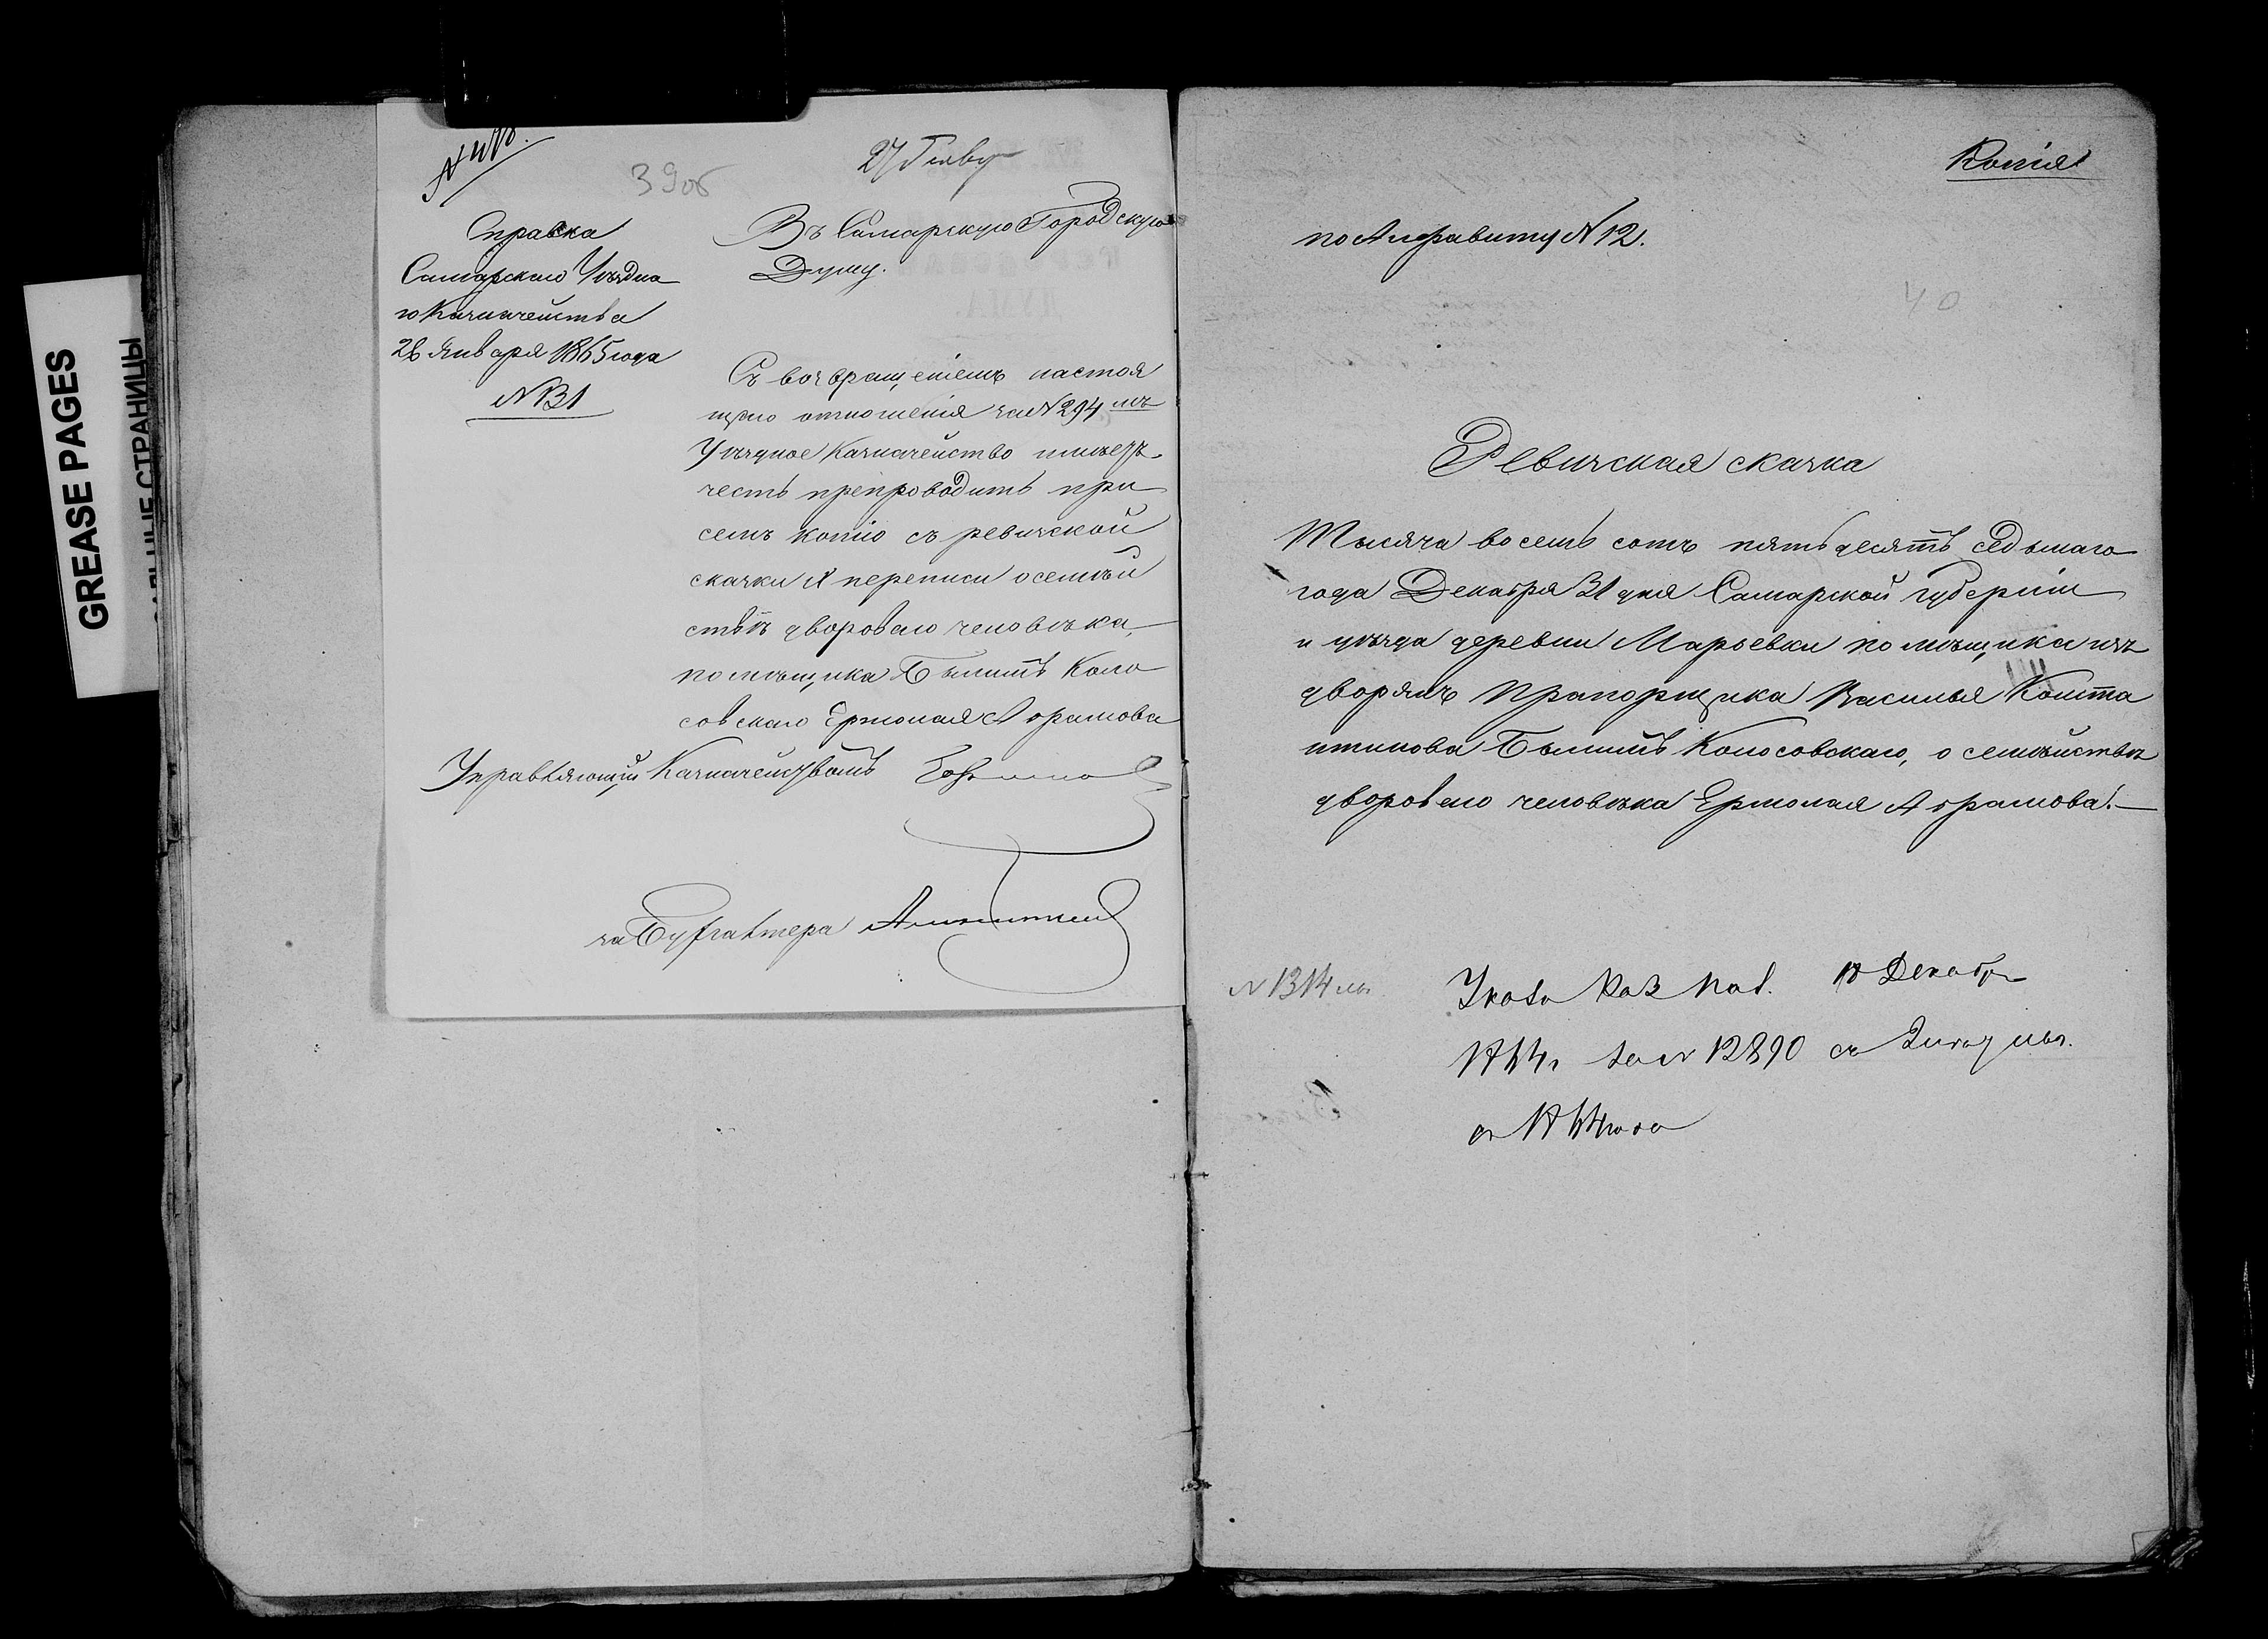 GREASE PAGES
39об
27 Генвар
Справка
Самарскаго Уѣздна
го Казначейства
28 Января 1865 года
№ 31
Въ Самарскую Городскую
Думу.
Съ возвращеніемъ настоя
щаго отношенія за № 294 мъ
Уѣздное Казначейство имѣетъ
честь препроводить при
семъ копію съ ревизской
сказки X переписи о семѣй
ствѣ двороваго человѣка,
помѣщика Коло
совскаго Ермолая Абрамова
Управляющій Казначействомъ
за Бухгалтера
Копія
по Алфавиту № 12.
40
Ревизская сказка
Тысяча восемь сотъ пятьдесятъ седьмаго
года Декабря 31 дня Самарской губерніи
и уѣзда деревни Марьевки помѣщика изъ
дворянъ Прапорщика Василья Конста
нтинова Колосовскаго, о семѣйствѣ
двороваго человѣка Ермолая Абрамова.
№ 1314
Указъ Каз Пал. 18 Декабр
за № 12890 съ